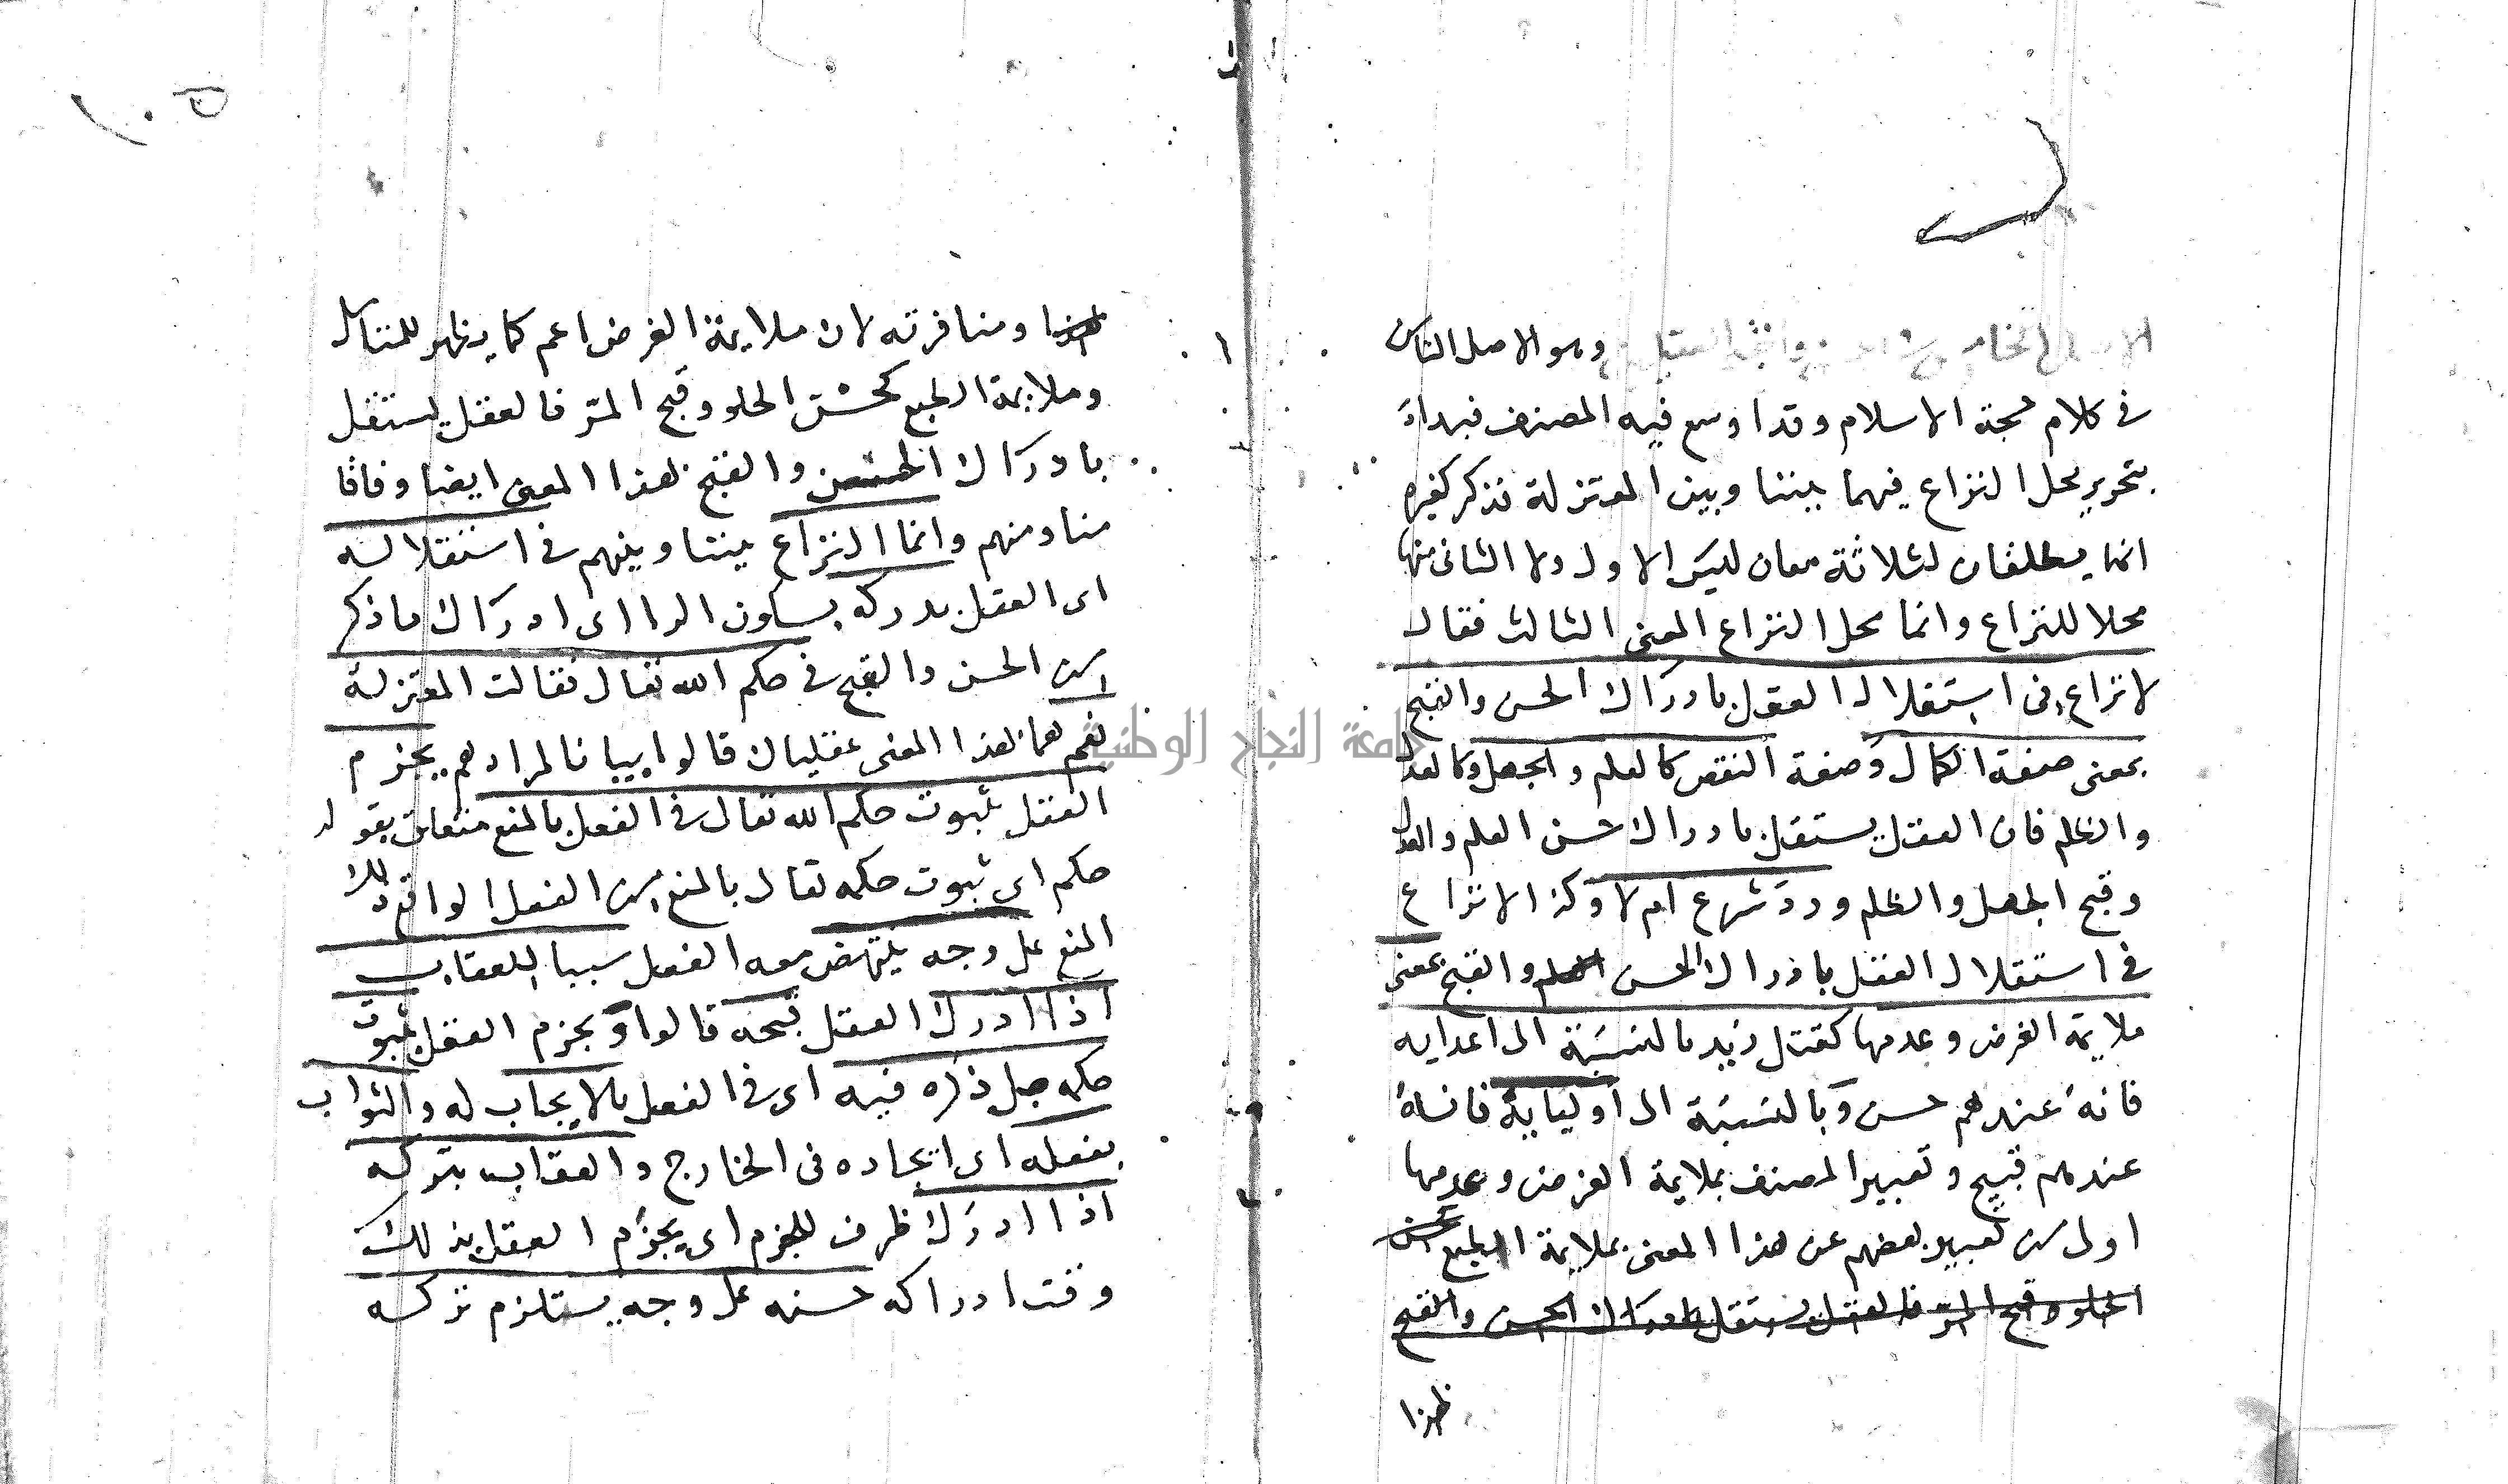 وهو الاصل الثامن
في كلام حجة الاسلام وقد اوسع فيه المصنف فبداء
بتحرير محل النزاع فيهما بيننا وبين المعتزلة تذكر كغيره
انما يطلقان لثلاثة معان ليس الاول ولا الثاني منها
محلا للنزاع وانما محل النزاع المعنى الثالث فقال
لا نزاع في استقلال العقل بادراك الحسن والقبح
بمعنى صفة الكمال وصفة النقص كالعلم والجهل وكالعدل
والظلم فان العقل يستقل بادراك حسن العلم والعدل
وقبح الجهل والظلم ورد شرع ام لا وكذا لا نزاع
في استقلال العقل بادراك الحسن والقبح بمعنى
ملايمة الغرض وعدمها كقتل زيد بالنسبة الى اعدايه
فانه عندهم حسن وبالنسبة الى اوليايه فانه
عندهم قبيح وتعبير المصنف بملايمة الغرض وعدمها
اولى من تعبير بعضهم عن هذا المعنى بملايمة الطبع كحسن
الحلو وقبح المر فالعقل يستقل بادراك الحسن والقبح
بهذا
ومنافرته لان ملايمة الغرض اعم كما يظهر للمتامل
وملايمة الطبع كحسن الحلو وقبح المر فالعقل يستقل
بادراك الحسن والقبح بهذا المعنى ايضا وفاقا
منا ومنهم وانما النزاع بيننا وبينهم في استقلاله
اى العقل بدركه بسكون الرا اى ادراك ما ذكر
من الحسن والقبح في حكم الله تعالى فقالت المعتزلة
نعم هما بهذا المعنى عقليان قالوا بيانا لمرادهم يجزم
العقل بثبوت حكم الله تعالى في الفعل بالمنع متعلق بقوله
حكم اى ثبوت حكمه تعالى بالمنع من الفعل الواقع ذلك
المنع على وجه ينتهض معه الفعل سببا للعقاب
اذا ادرك العقل قبحه قالوا ويجزم العقل بثبوت
حكمه جل ذكره فيه اى في الفعل بالايجاب له والثواب
بفعله اى ايجاده في الخارج والعقاب بتركه
اذا ادرك ظرف للجزم اى يجزم العقل بذلك
وقت ادراكه حسنه على وجه يستلزم تركه
جامعة النجاح الوطنية